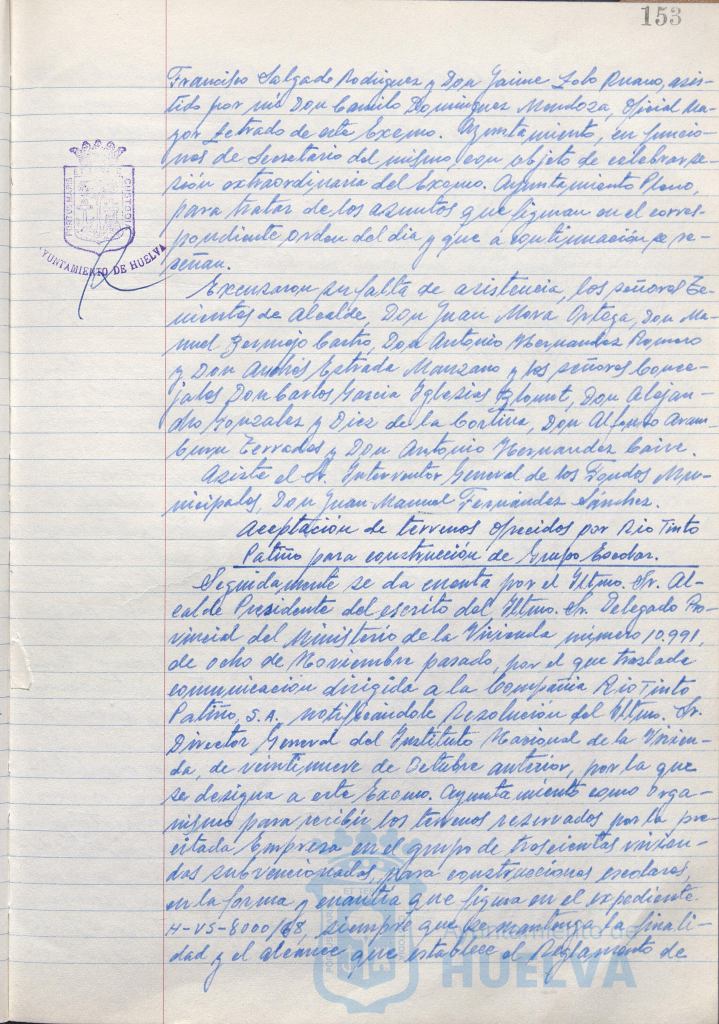 153
Francisco Salgado Rodriguez y Don Jaime Lobo Ruano, asis-
tido por mi Don Camilo Dominguez Mendoza, Oficial Ma-
yor Letrado de este Excmo. Ayuntamiento, en funcio-
nes de Secretario del mismo, con objeto de celebrar se-
sión extraordinaria del Excmo. Ayuntamiento Pleno,
para tratar de los asuntos que figuran en el corres-
pondiente orden del dia y que a continuación se re-
señan.
AYUNTAMIENTO DE HUELVA
Excusaron su falta de asistencia, los señores Te-
nientes de Alcalde, Don Juan Mora Ortega, Don Ma-
nuel Bermejo Castro, Don Antonio Hernandez Romero
y Don Andrés Estrada Manzano y los señores Conce-
jales Don Carlos Garcia Yglesias Don Alejan-
dro Gonzalez y Diez de la Cortina, Don Alfonso Aram-
buru Terrades y Don Antonio Hernandez
Asiste el Sr. Interventor General de los Fondos Mu-
nicipales, Don Juan Manuel Fernández Sánchez.
Aceptación de terrenos ofrecidos por Rio Tinto
Patiño para construcción de Grupo Escolar.
Seguidamente se da cuenta por el Iltmo. Sr. Al-
calde Presidente del escrito del Iltmo. Sr. Delegado Pro-
vincial del Ministerio de la Vivienda número 10.991,
de ocho de Noviembre pasado, por el que traslada
comunicación dirigida a la Compañia Rio Tinto
Patiño, S.A. notificándole Resolución del Iltmo. Sr.
Director General del Instituto Nacional de la Vivien-
da, de veintinueve de Octubre anterior, por la que
se designa a este Excmo. Ayuntamiento como orga-
nismo para recibir los terrenos reservados por la pre-
citada Empresa en el grupo de trescientas vivien-
das subvencionadas, para construcciones escolares,
en la forma y cuantía que figura en el expediente
H-VS-8000/68, siempre que se mantenga la finali-
dad y el alcance que establece el Reglamento de
Ayuntamiento de
HUELVA